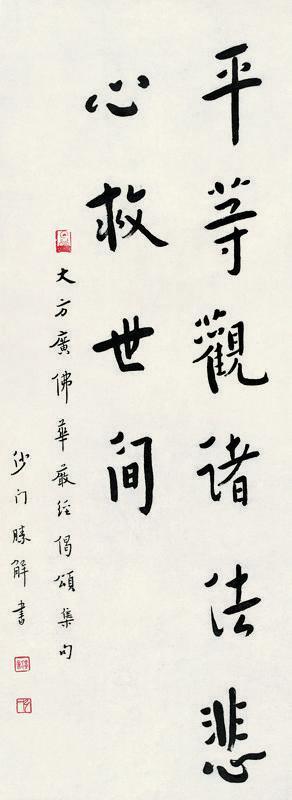 平等觀諸法悲
心救世间
大方廣佛華嚴经偈頌集句
沙门勝解書